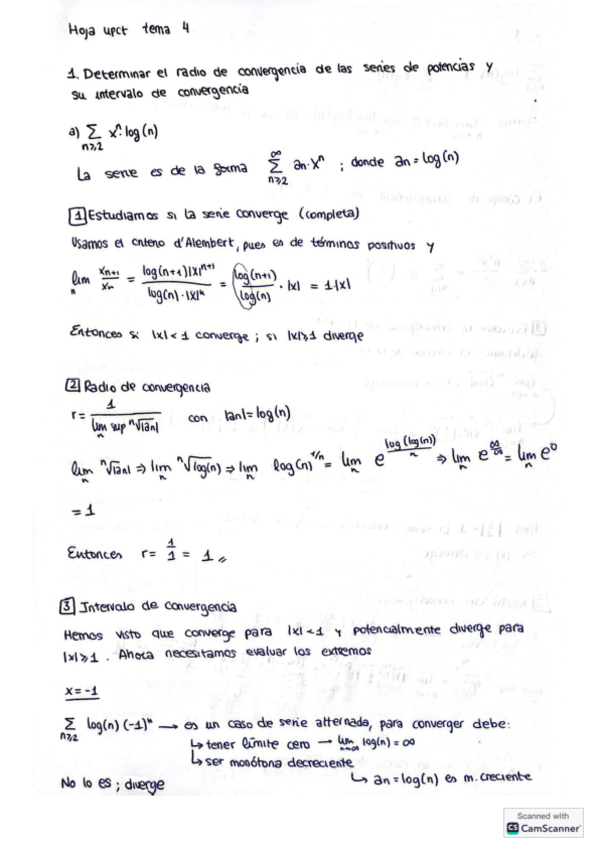 Hoja upct tema 4
1. Determinar el radio de convergencia de las series de potencias y
su intervalo de convergencia
a) ∑ xⁿ·log(n)
n≥2
La serie es de la forma ∑ an·xⁿ ; donde an = log(n)
∞
n≥2
1 Estudiamos si la serie converge (completa)
Usamos el criterio d'Alembert, pues es de términos positivos y
lim_n xn+1/xn = log(n+1)|x|ⁿ⁺¹ / log(n)·|x|ⁿ = log(n+1)/log(n) · |x| = 1·|x|
Entonces si |x|<1 converge ; si |x|≥1 diverge
2 Radio de convergencia
r = 1 / lim_n sup ⁿ√|an| con |an| = log(n)
lim_n ⁿ√|an| ⇒ lim_n ⁿ√log(n) ⇒ lim_n log(n)^(1/n) = lim_n e^(log(log(n))/n) ⇒ lim_n e^(∞/∞) = lim_n e⁰
= 1
Entonces r = 1/1 = 1
3 Intervalo de convergencia
Hemos visto que converge para |x|<1 y potencialmente diverge para
|x|≥1. Ahora necesitamos evaluar los extremos
x=-1
∑ log(n) (-1)ⁿ → es un caso de serie alternada, para converger debe:
n≥2
↳ tener límite cero → lim_n→∞ log(n) = ∞
↳ ser monótona decreciente
↳ an = log(n) es m. creciente
No lo es ; diverge
Scanned with
CS CamScanner